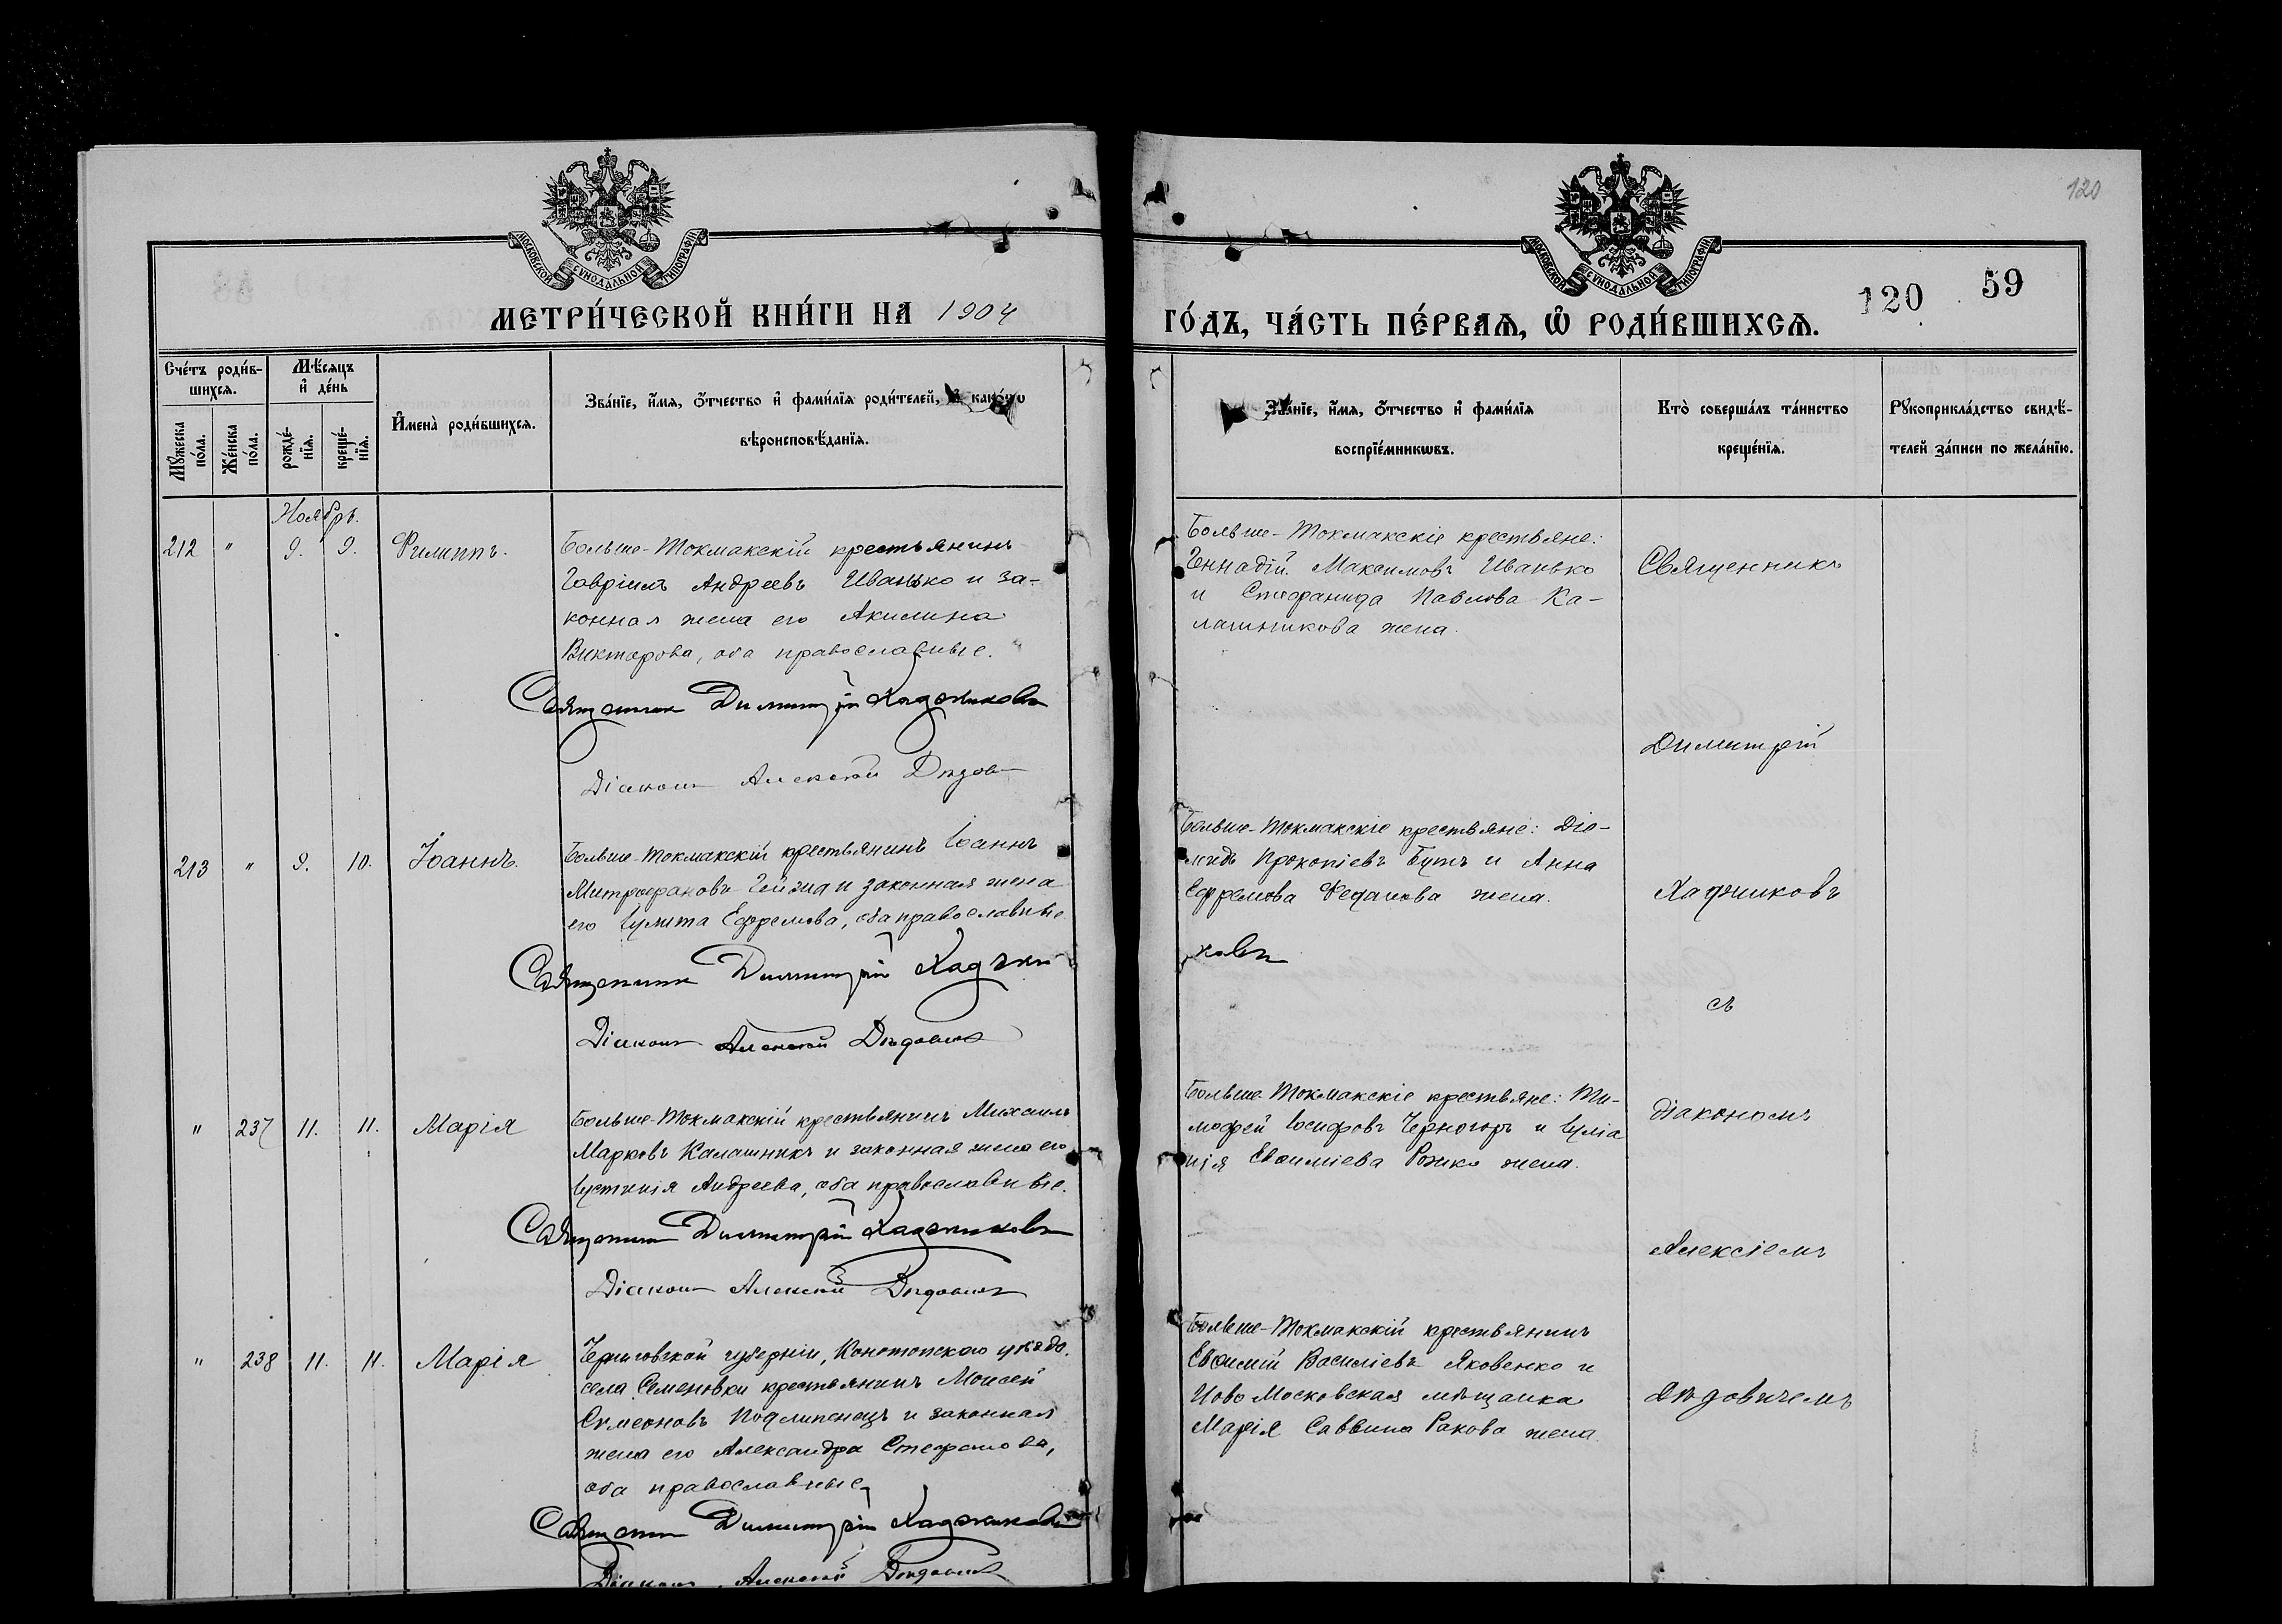 120
МОСКОВСКОЙ СѴНОДАЛЬНОЙ ТИПОГРАФІИ
МОСКОВСКОЙ СѴНОДАЛЬНОЙ ТИПОГРАФІИ
120 59
МЕТРИ́ЧЕСКОЙ КНИ́ГИ НА 1904
ГО́ДЪ, ЧА́СТЬ ПЕ́РВАЯ, Ѽ РОДИ́ВШИХСЯ.
Сче́тъ роди́в-
шихся.
Мѣ́сяцъ
и де́нь
Мꙋ́жеска
по́ла.
Же́нска
по́ла.
рожде́-
нїя.
креще́-
нїя.
Имена̀ роди́вшихся.
Зва́нїе, и́мя, ѻ́тчество и фами́лїя роди́телей, и како́гѡ
вѣроисповѣ́данїя.
Зва́нїе, и́мя, ѻ́тчество и фами́лїя
воспрїе́мникѡвъ.
Кто̀ соверша́лъ та́инство
креще́нїя.
Рꙋкоприкла́дство свидѣ́-
телей за́писи по жела́нїю.
Ноябрь.
212 " 9. 9. Филиппъ.
Больше-Токмакскій крестьянинъ
Гавріилъ Андреевъ Иванько и за-
конная жена его Акилина
Викторова, оба православные.
Священник Димитрій Хаджиковъ
Діаконъ Алексій Дѣдович
Больше-Токмакскіе крестьяне:
Геннадій Максимовъ Иванько
и Стефанида Павлова Ка-
лашникова жена.
Священникъ
Димитрій
213 " 9. 10. Іоаннъ.
Больше-Токмакскій крестьянинъ Іоаннъ
Митрофановъ и законная жена
его Іулита Ефремова, оба православные
Священник Димитрій Хаджи
ковъ
Діаконъ Алексій Дѣдович
Больше-Токмакскіе крестьяне: Діо-
мидъ Прокопіевъ Бутъ и Анна
Ефремова Федакова жена.
Хаджиковъ
съ
" 237 11. 11. Марія
Больше-Токмакскій крестьянинъ Михаилъ
Марковъ Калашникъ и законная жена его
Іустинія Андреева, оба православные.
Священник Димитрій Хаджиковъ
Діаконъ Алексій Дѣдович
Больше-Токмакскіе крестьяне: Ти-
мофей Іосифовъ Черногоръ и Іуліа
нія Евѳиміева Рожко жена.
діакономъ
Алексіемъ
" 238 11. 11. Марія
Черниговской губерніи, Конотопскаго уѣзда.
села Семеновки крестьянинъ Моисей
Симеоновъ Подлипенецъ и законная
жена его Александра Стефанова,
оба православные
Священник Димитрій Хаджиковъ
Діаконъ Алексій Дѣдович
Больше-Токмакскій крестьянинъ
Евѳимій Василіевъ Яковенко и
Ново Московская мѣщанка
Марія Саввина Ракова жена.
Дѣдовичемъ